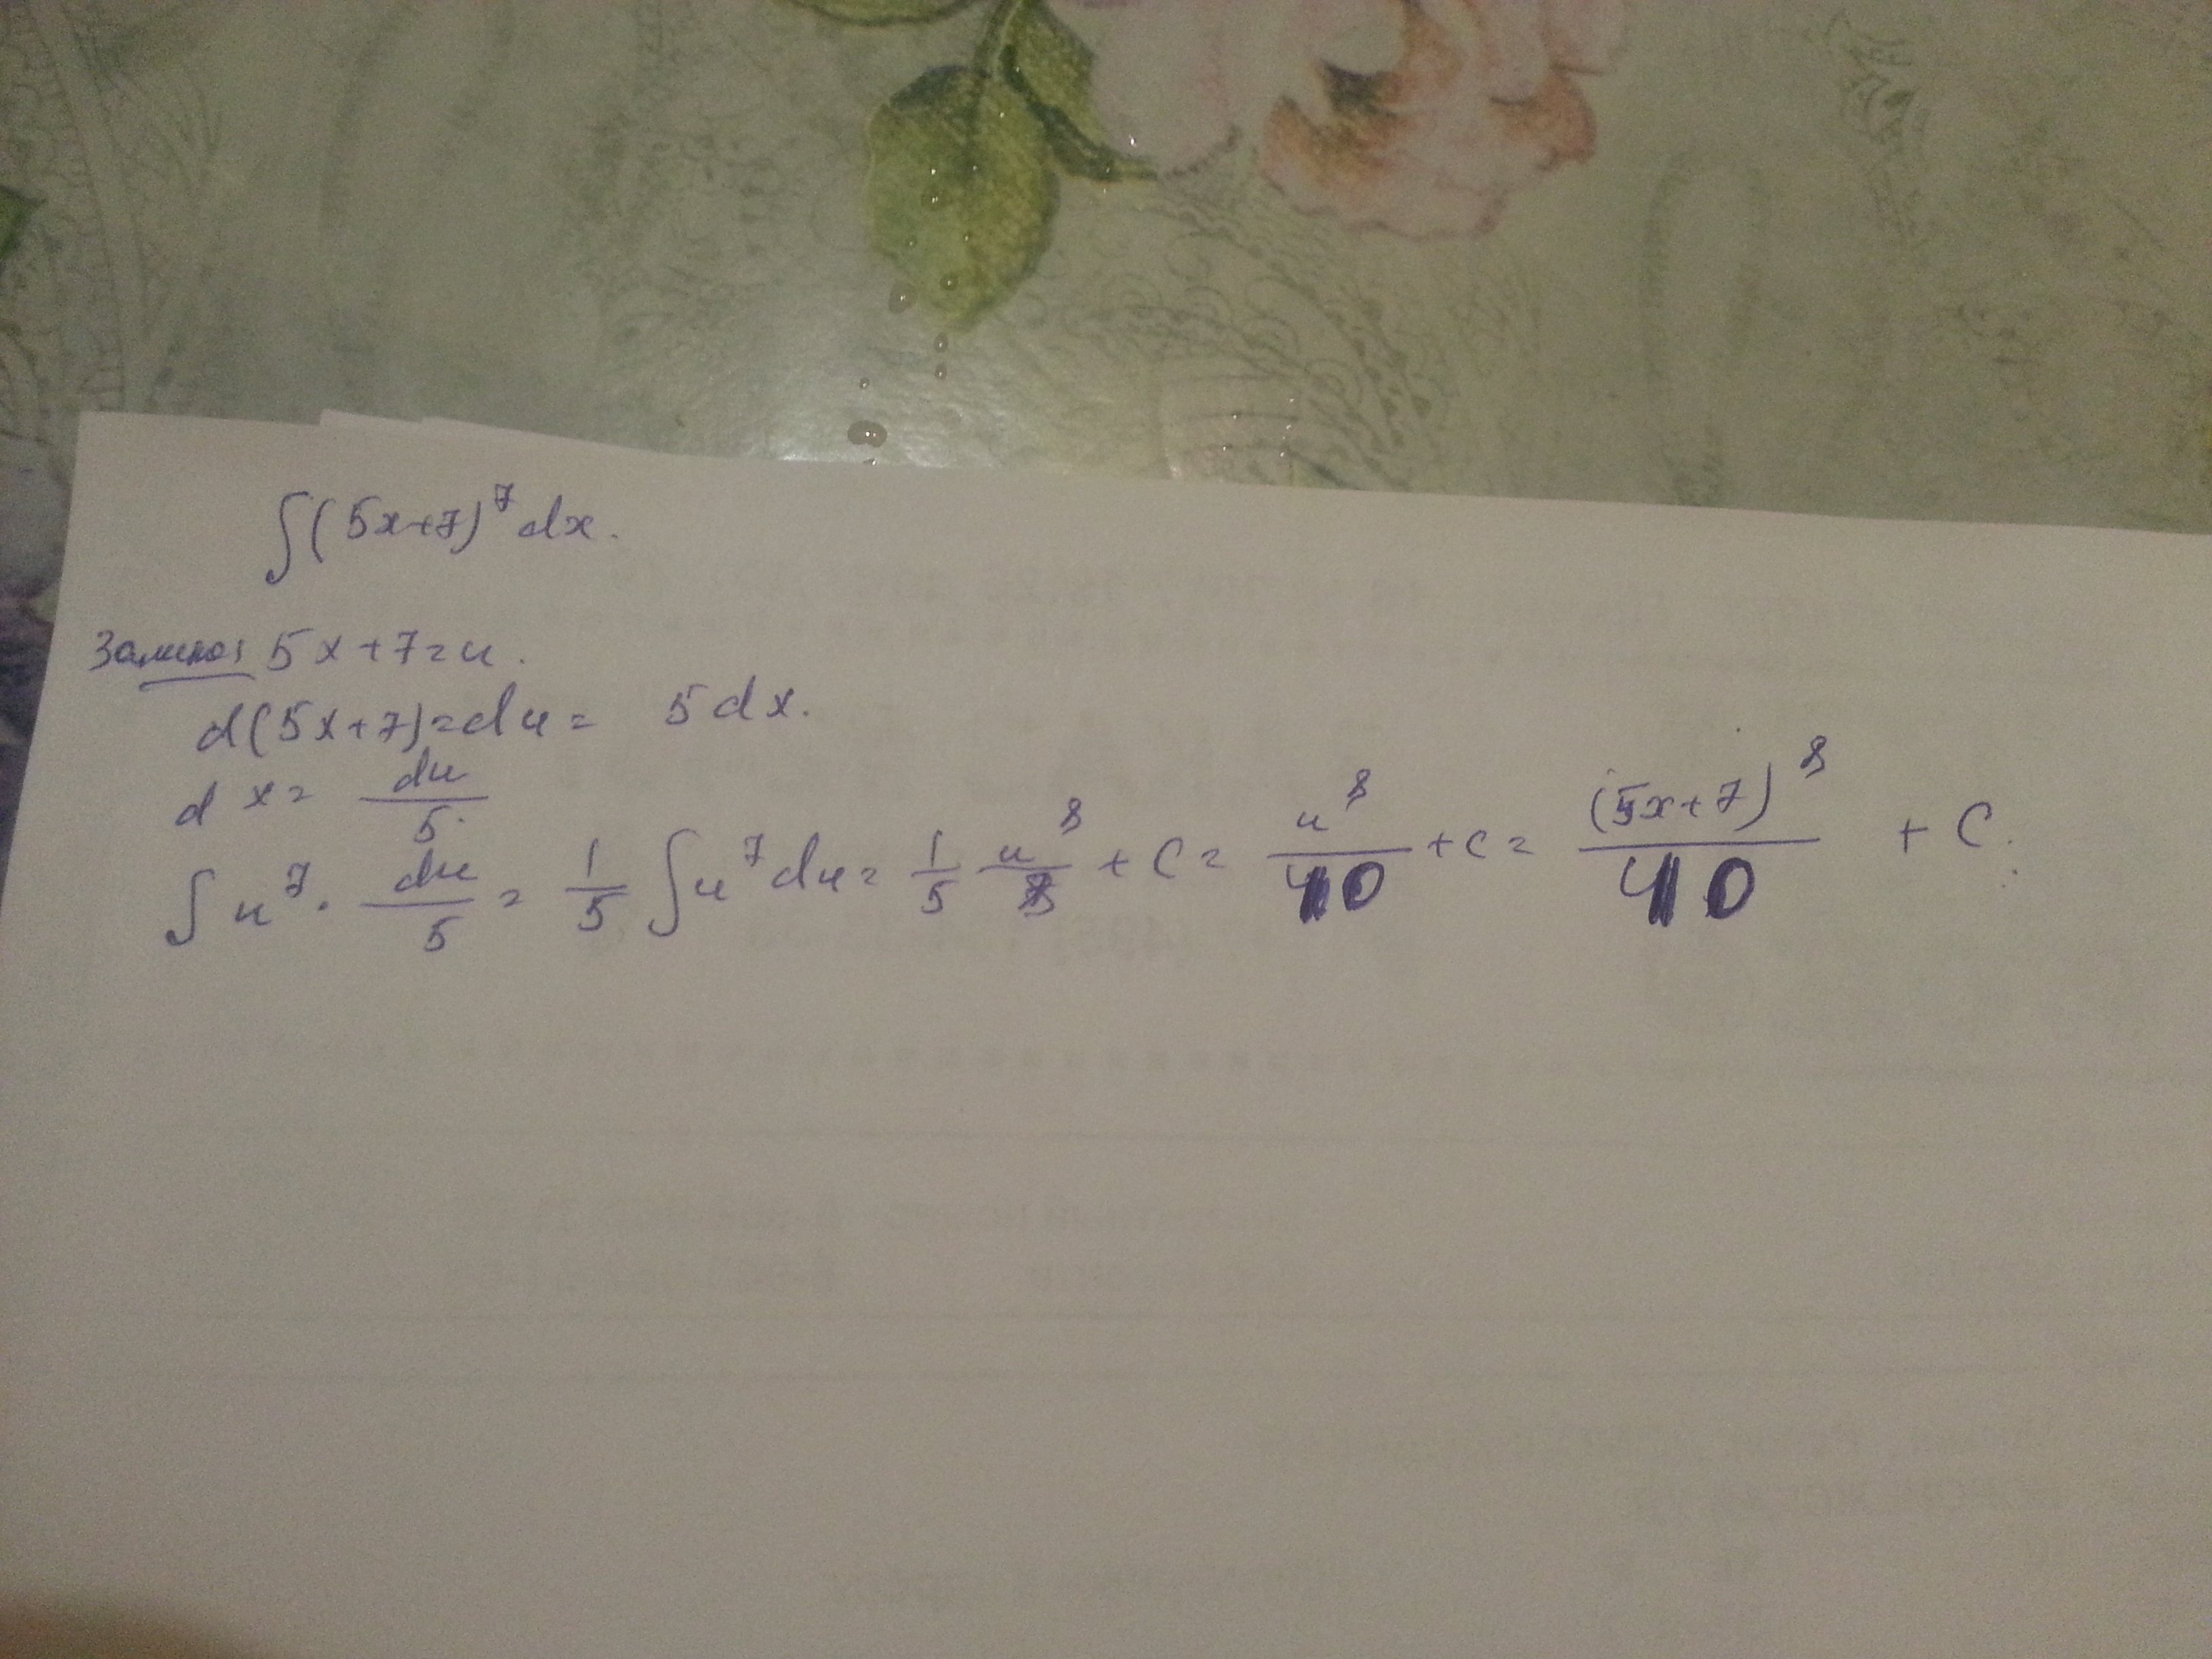 ∫(5x+7)⁷dx.
Замена: 5x+7=u.
d(5x+7)=du= 5dx.
dx= du/5.
∫u⁷·du/5=1/5∫u⁷du=1/5 u⁸/8+C=u⁸/40+C=(5x+7)⁸/40+C.